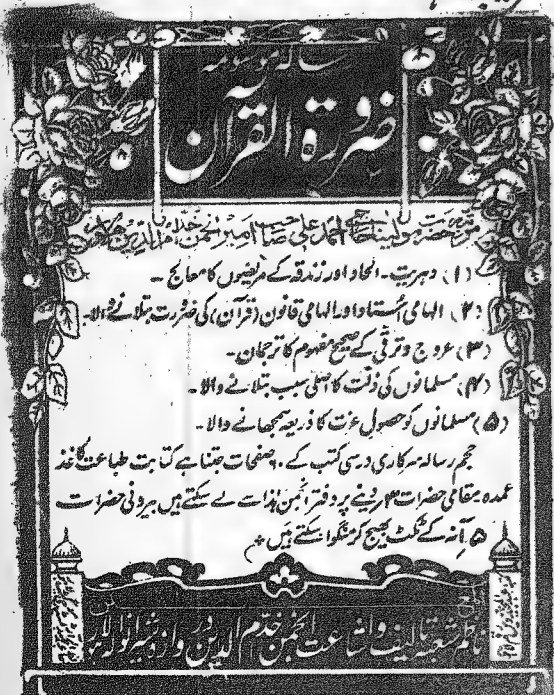 رسالہ موسومہ
ضرورة القرآن
مرتبہ حضرت مولینا احمد علی صاحب امیر انجمن خدام الدین لاہور
(۱) دہریت۔ الحاد اور زندقہ کے مریضوں کا معالج۔
(۲) الہامی اُستاد اور الہامی قانون (قرآن) کی ضرورت بتلانے والا۔
(۳) عروج و ترقی کے صحیح مفہوم کا ترجمان۔
(۴) مسلمانوں کی ذلت کا اصلی سبب بتلانے والا۔
(۵) مسلمانوں کو حصول عزت کا ذریعہ سمجھانے والا۔
حجم رسالہ سرکاری درسی کتب کے صفحات جتنا ہے کتابت طباعت کاغذ
عمدہ مقامی حضرات دینے پر دفتر انجمن ہذا سے لے سکتے ہیں بیرونی حضرات
۵ آنہ کے ٹکٹ بھیج کر منگوا سکتے ہیں
ناظم شعبہ تالیف و اشاعت انجمن خدام الدین دروازہ شیرانوالہ لاہور